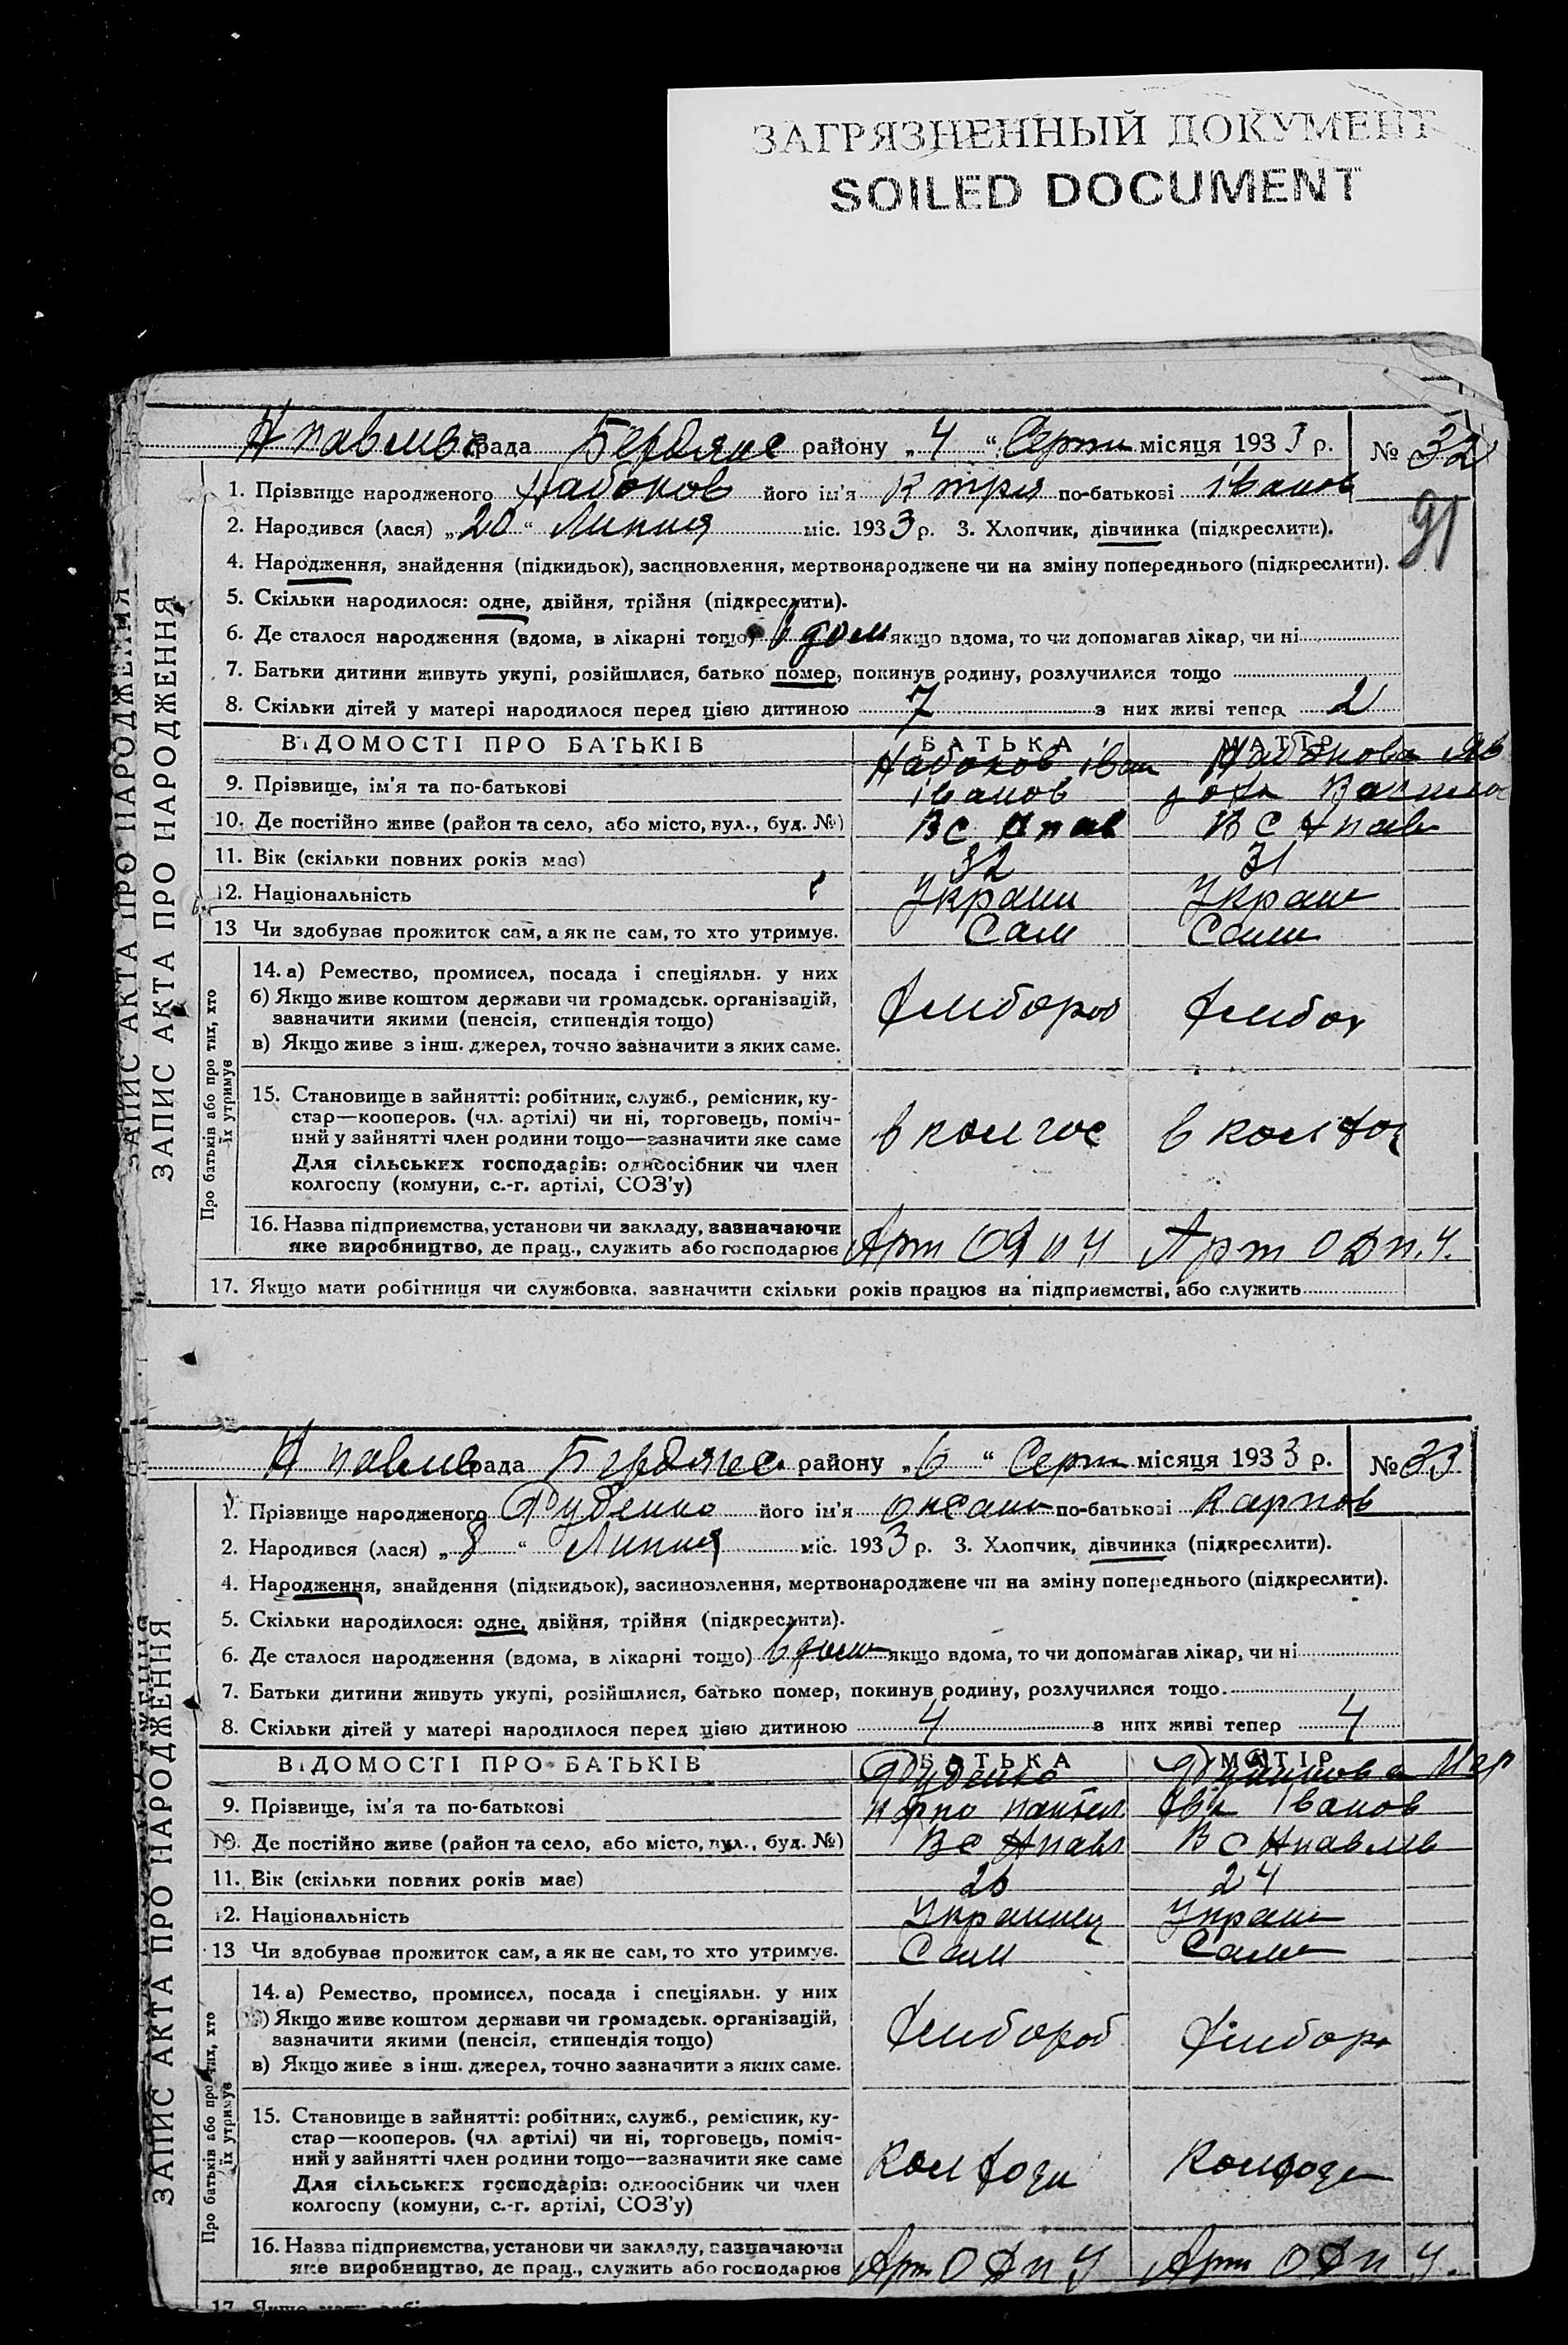 ЗАГРЯЗНЕННЫЙ ДОКУМЕНТ
SOILED DOCUMENT
ЗАПИС АКТА ПРО НАРОДЖЕННЯ
ЗАПИС АКТА ПРО НАРОДЖЕННЯ
рада Бердянс району „4“ Серпн місяця 1933 р. № 32
1. Прізвище народженого Набоков його ім'я по-батькові Іванов
91
2. Народився (лася) „20“ Липня міс. 1933 р. 3. Хлопчик, дівчинка (підкреслити).
4. Народження, знайдення (підкидьок), засиновлення, мертвонароджене чи на зміну попереднього (підкреслити).
5. Скільки народилося: одне, двійня, трійня (підкреслити).
6. Де сталося народження (вдома, в лікарні тощо) вдом якщо вдома, то чи допомагав лікар, чи ні
7. Батьки дитини живуть укупі, розійшлися, батько помер, покинув родину, розлучилися тощо
8. Скільки дітей у матері народилося перед цією дитиною 7 з них живі тепер 2
ВІДОМОСТІ ПРО БАТЬКІВ БАТЬКА МАТІР
Набоков Іван Набокова
9. Прізвище, ім'я та по-батькові Іванов
10. Де постійно живе (район та село, або місто, вул., буд. №) ВС Нпав ВС Нпав
11. Вік (скільки повних років має) 32 31
12. Національність Украин Украин
13 Чи здобував прожиток сам, а як не сам, то хто утримує. Сам Сам
Про батьків або про тих, хто їх утримує
14. а) Ремество, промисел, посада і спеціяльн. у них
б) Якщо живе коштом держави чи громадськ. організацій,
зазначити якими (пенсія, стипендія тощо)
в) Якщо живе з інш. джерел, точно зазначити з яких саме.
15. Становище в зайнятті: робітник, служб., ремісник, ку-
стар—кооперов. (чл. артілі) чи ні, торговець, поміч-
ний у зайнятті член родини тощо—зазначити яке саме
Для сільських господарів: одноосібник чи член
колгоспу (комуни, с.-г. артілі, СОЗ'у)
16. Назва підприємства, установи чи закладу, зазначаючи
яке виробництво, де прац., служить або господарює Арт ОДПУ Арт ОДПУ.
17. Якщо мати робітниця чи службовка, зазначити скільки років працює на підприємстві, або служить
ЗАПИС АКТА ПРО НАРОДЖЕННЯ
рада Бердянс району „6“ Серпн місяця 1933 р. № 33
1. Прізвище народженого Руденко його ім'я Оксана по-батькові Карпов
2. Народився (лася) „8“ Липня міс. 1933 р. 3. Хлопчик, дівчинка (підкреслити).
4. Народження, знайдення (підкидьок), засиновлення, мертвонароджене чи на зміну попереднього (підкреслити).
5. Скільки народилося: одне, двійня, трійня (підкреслити).
6. Де сталося народження (вдома, в лікарні тощо) вдом якщо вдома, то чи допомагав лікар, чи ні
7. Батьки дитини живуть укупі, розійшлися, батько помер, покинув родину, розлучилися тощо
8. Скільки дітей у матері народилося перед цією дитиною 4 з них живі тепер 4
ВІДОМОСТІ ПРО БАТЬКІВ БАТЬКА МАТІР
Руденко
9. Прізвище, ім'я та по-батькові Карпо Пантел Іванов
10. Де постійно живе (район та село, або місто, вул., буд. №) ВС Нпавл ВС Нпавлів
11. Вік (скільки повних років має) 24
12. Національність Украинец Украин
13 Чи здобував прожиток сам, а як не сам, то хто утримує. Сам Сам
Про батьків або про тих, хто їх утримує
14. а) Ремество, промисел, посада і спеціяльн. у них
б) Якщо живе коштом держави чи громадськ. організацій,
зазначити якими (пенсія, стипендія тощо)
в) Якщо живе з інш. джерел, точно зазначити з яких саме.
15. Становище в зайнятті: робітник, служб., ремісник, ку-
стар—кооперов. (чл. артілі) чи ні, торговець, поміч-
ний у зайнятті член родини тощо—зазначити яке саме
Для сільських господарів: одноосібник чи член
колгоспу (комуни, с.-г. артілі, СОЗ'у)
16. Назва підприємства, установи чи закладу, зазначаючи
яке виробництво, де прац., служить або господарює Арт ОДПУ Арт ОДПУ.